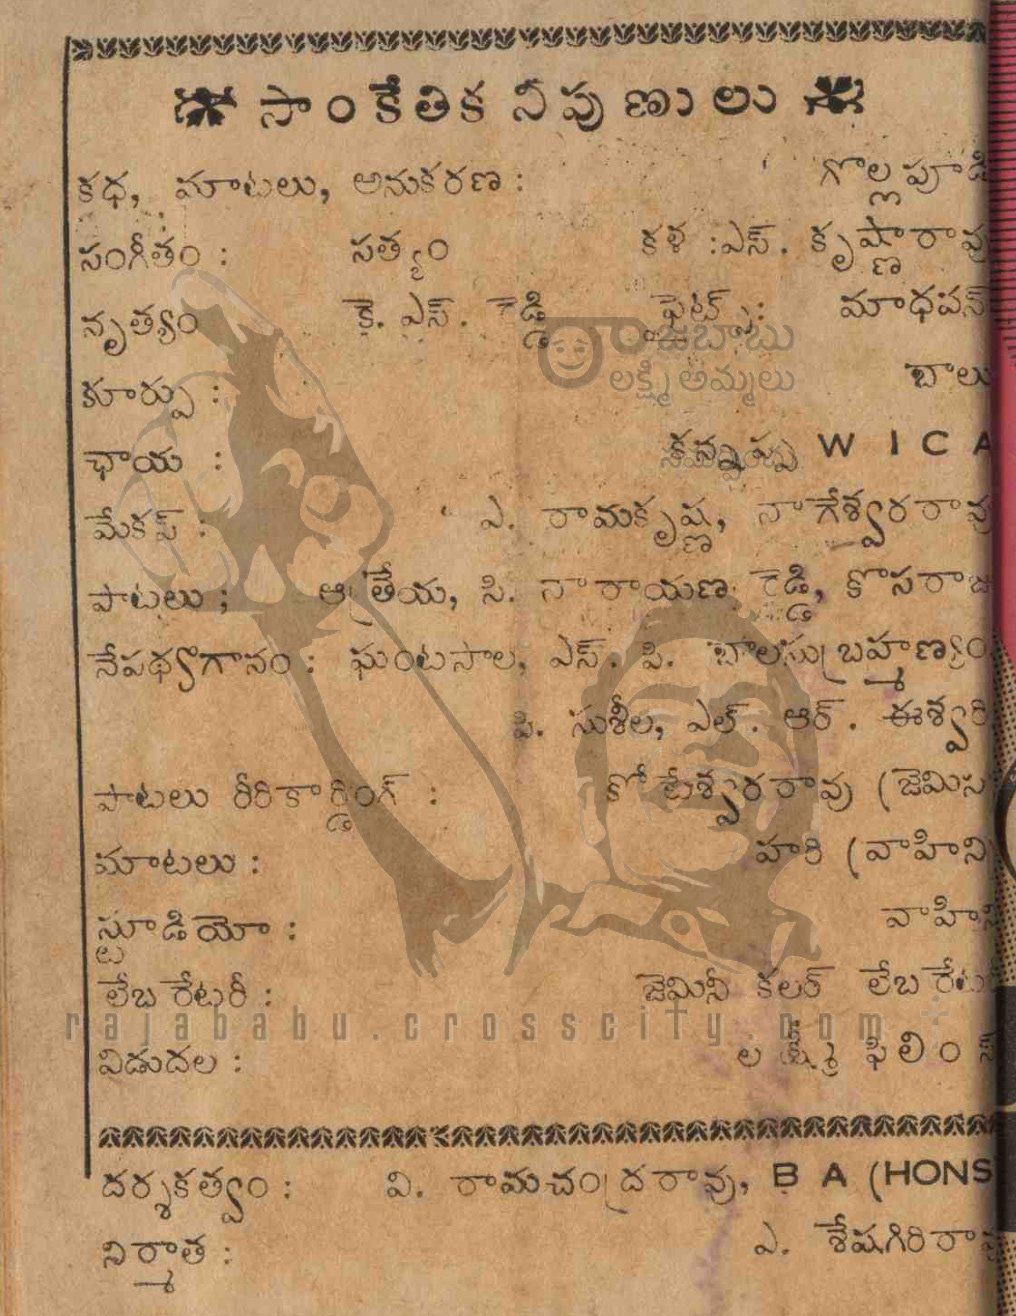 సాంకేతిక నిపుణులు
కధ, మాటలు, అనుకరణ : గొల్లపూడి
సంగీతం : సత్యం కళ : ఎస్. కృష్ణారావు
నృత్యం కె. ఎస్. రెడ్డి ఫైట్స్ : మాధవన్
రాజబాబు
లక్ష్మి అమ్మలు
కూర్పు : బాలు
ఛాయ : కన్నప్ప W I C A
మేకప్ : ఎ. రామకృష్ణ, నాగేశ్వరరావు
పాటలు ; ఆత్రేయ, సి. నారాయణ రెడ్డి, కొసరాజ
నేపథ్యగానం : ఘంటసాల, ఎస్. పి. బాలసుబ్రహ్మణ్యం
పి. సుశీల, ఎల్. ఆర్. ఈశ్వరి
పాటలు రీరికార్డింగ్ : కోటేశ్వరరావు (జెమిని
మాటలు : హరి (వాహిని
స్టూడియో : వాహిని
లేబరేటరీ : జెమినీ కలర్ లేబరేట
rajababu.crosscity.com
విడుదల : లక్ష్మీ ఫిలింస్
దర్శకత్వం : వి. రామచంద్రరావు, B A (HONS
నిర్మాత : ఎ. శేషగిరిరావు